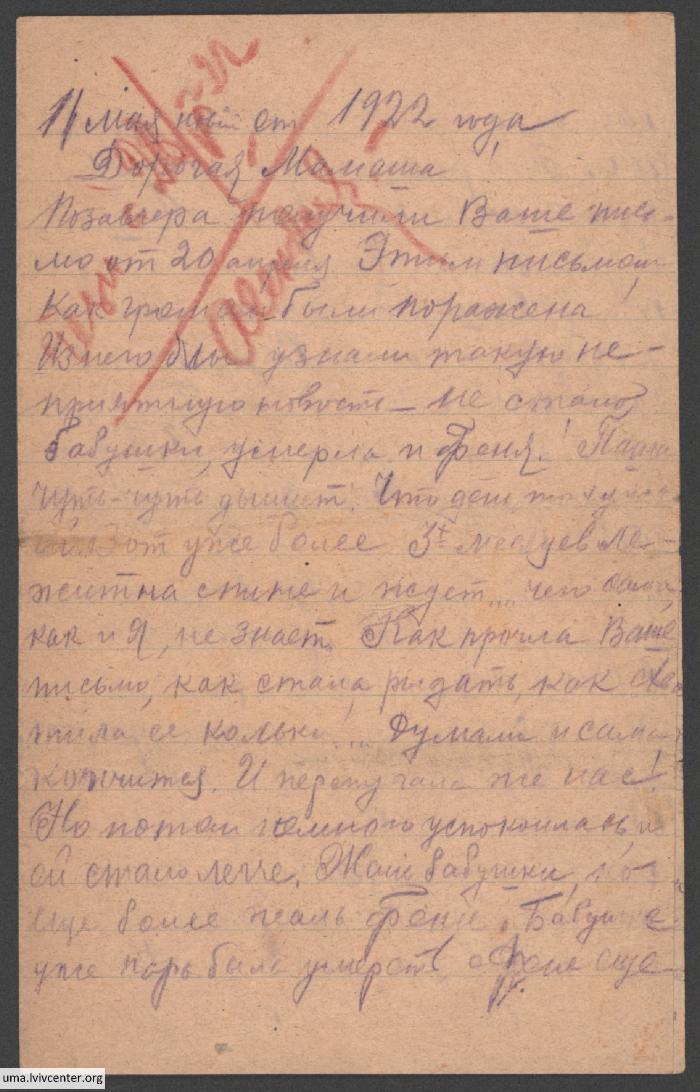 11 мая нов ст 1922 года
Дорогая Мамаша!
Позавчера получили Ваше пись-
мо от 20 апреля. Этим письмом
как громом были поражена!
Из него бы узнали такую не-
приятную новость – не стало
бабушки, умерла и Феня!
чуть-чуть дышет. Что
Вот уже более 3х месяцев ле-
жит на спине и ждет.... чего сама,
как и я, не знает. Как прочла Ваше
письмо, как стала рыдать, как схва-
тила ее колька!... Думали и сама
кончится. И перепугала же нас!
Но потом немного успокоилась и
ей стало легче. Жаль бабушки, но
еще более жаль Фени. Бабушке
уже пора было умереть а Фене еще
uma.lvivcenter.org